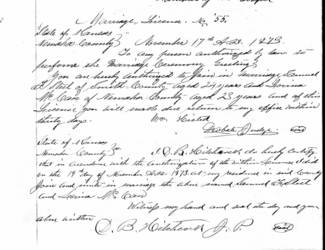 Marriage License No 55
State of Kansas
Nemaha County } November 17th A.D. 1873
To any person authorized by law to
perform the Marriage Ceremony, Greeting
You are hereby authorized to Join in marriage Samuel
of Smith County aged 29 years and
Mc of Nemaha County aged 23 years and of this
License you will make due return to my office within
thirty days. Wm
Probate Judge
State of Kansas
Nemaha County } I D. B. Hitchcock do hereby Certify
that in accordance with the authorization of the within License I did
on the 19th day of November A.D. 1873 at my residence in said County
Join and unite in marriage the above named Samuel
and Mc
Witness my hand and seal the day and year
above written
D. B. Hitchcock J. P.